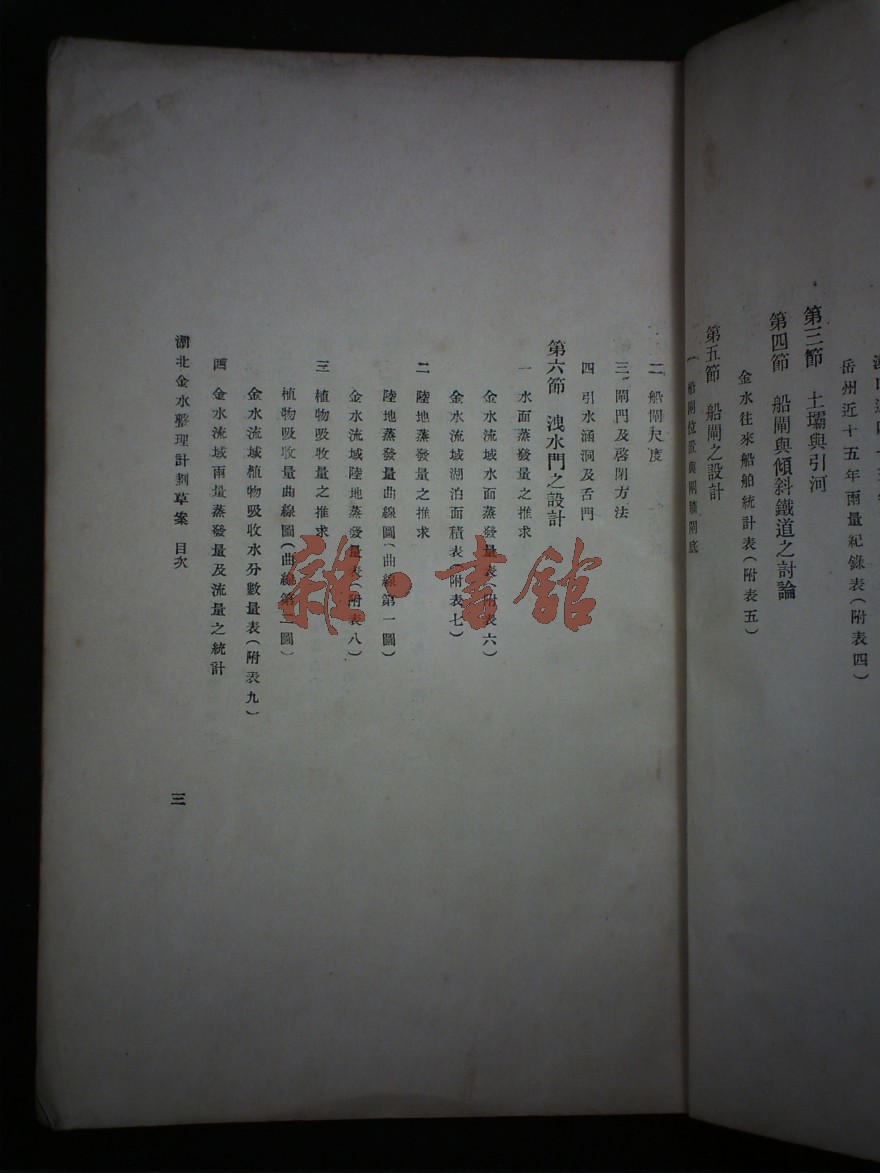 岳州近十五年雨量紀錄表(附表四)
第三節　土壩與引河
第四節　船閘與傾斜鐵道之討論
金水往來船舶統計表(附表五)
第五節　船閘之設計
一　船閘位置與閘牆閘底
二　船閘尺度
三　閘門及啓閉方法
四　引水涵洞及舌門
第六節　洩水門之設計
一　水面蒸發量之推求
金水流域水面蒸發量表(附表六)
金水流域湖泊面積表(附表七)
二　陸地蒸發量之推求
陸地蒸發量曲線圖(曲線第一圖)
金水流域陸地蒸發量表(附表八)
三　植物吸收量之推求
植物吸收量曲線圖(曲線第二圖)
金水流域植物吸收水分數量表(附表九)
四　金水流域雨量蒸發量及流量之統計
湖北金水整理計劃草案　目次
三
雜·書館